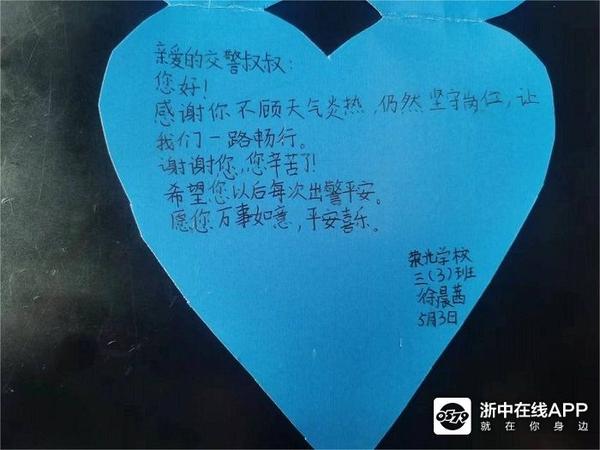 亲爱的交警叔叔：
您好！
感谢你不顾天气炎热，仍然坚守岗位，让
我们一路畅行。
谢谢您，您辛苦了！
希望您以后每次出警平安。
愿您万事如意，平安喜乐。
荣光学校
三（3）班
徐晨茜
5月3日
浙中在线APP
就在你身边